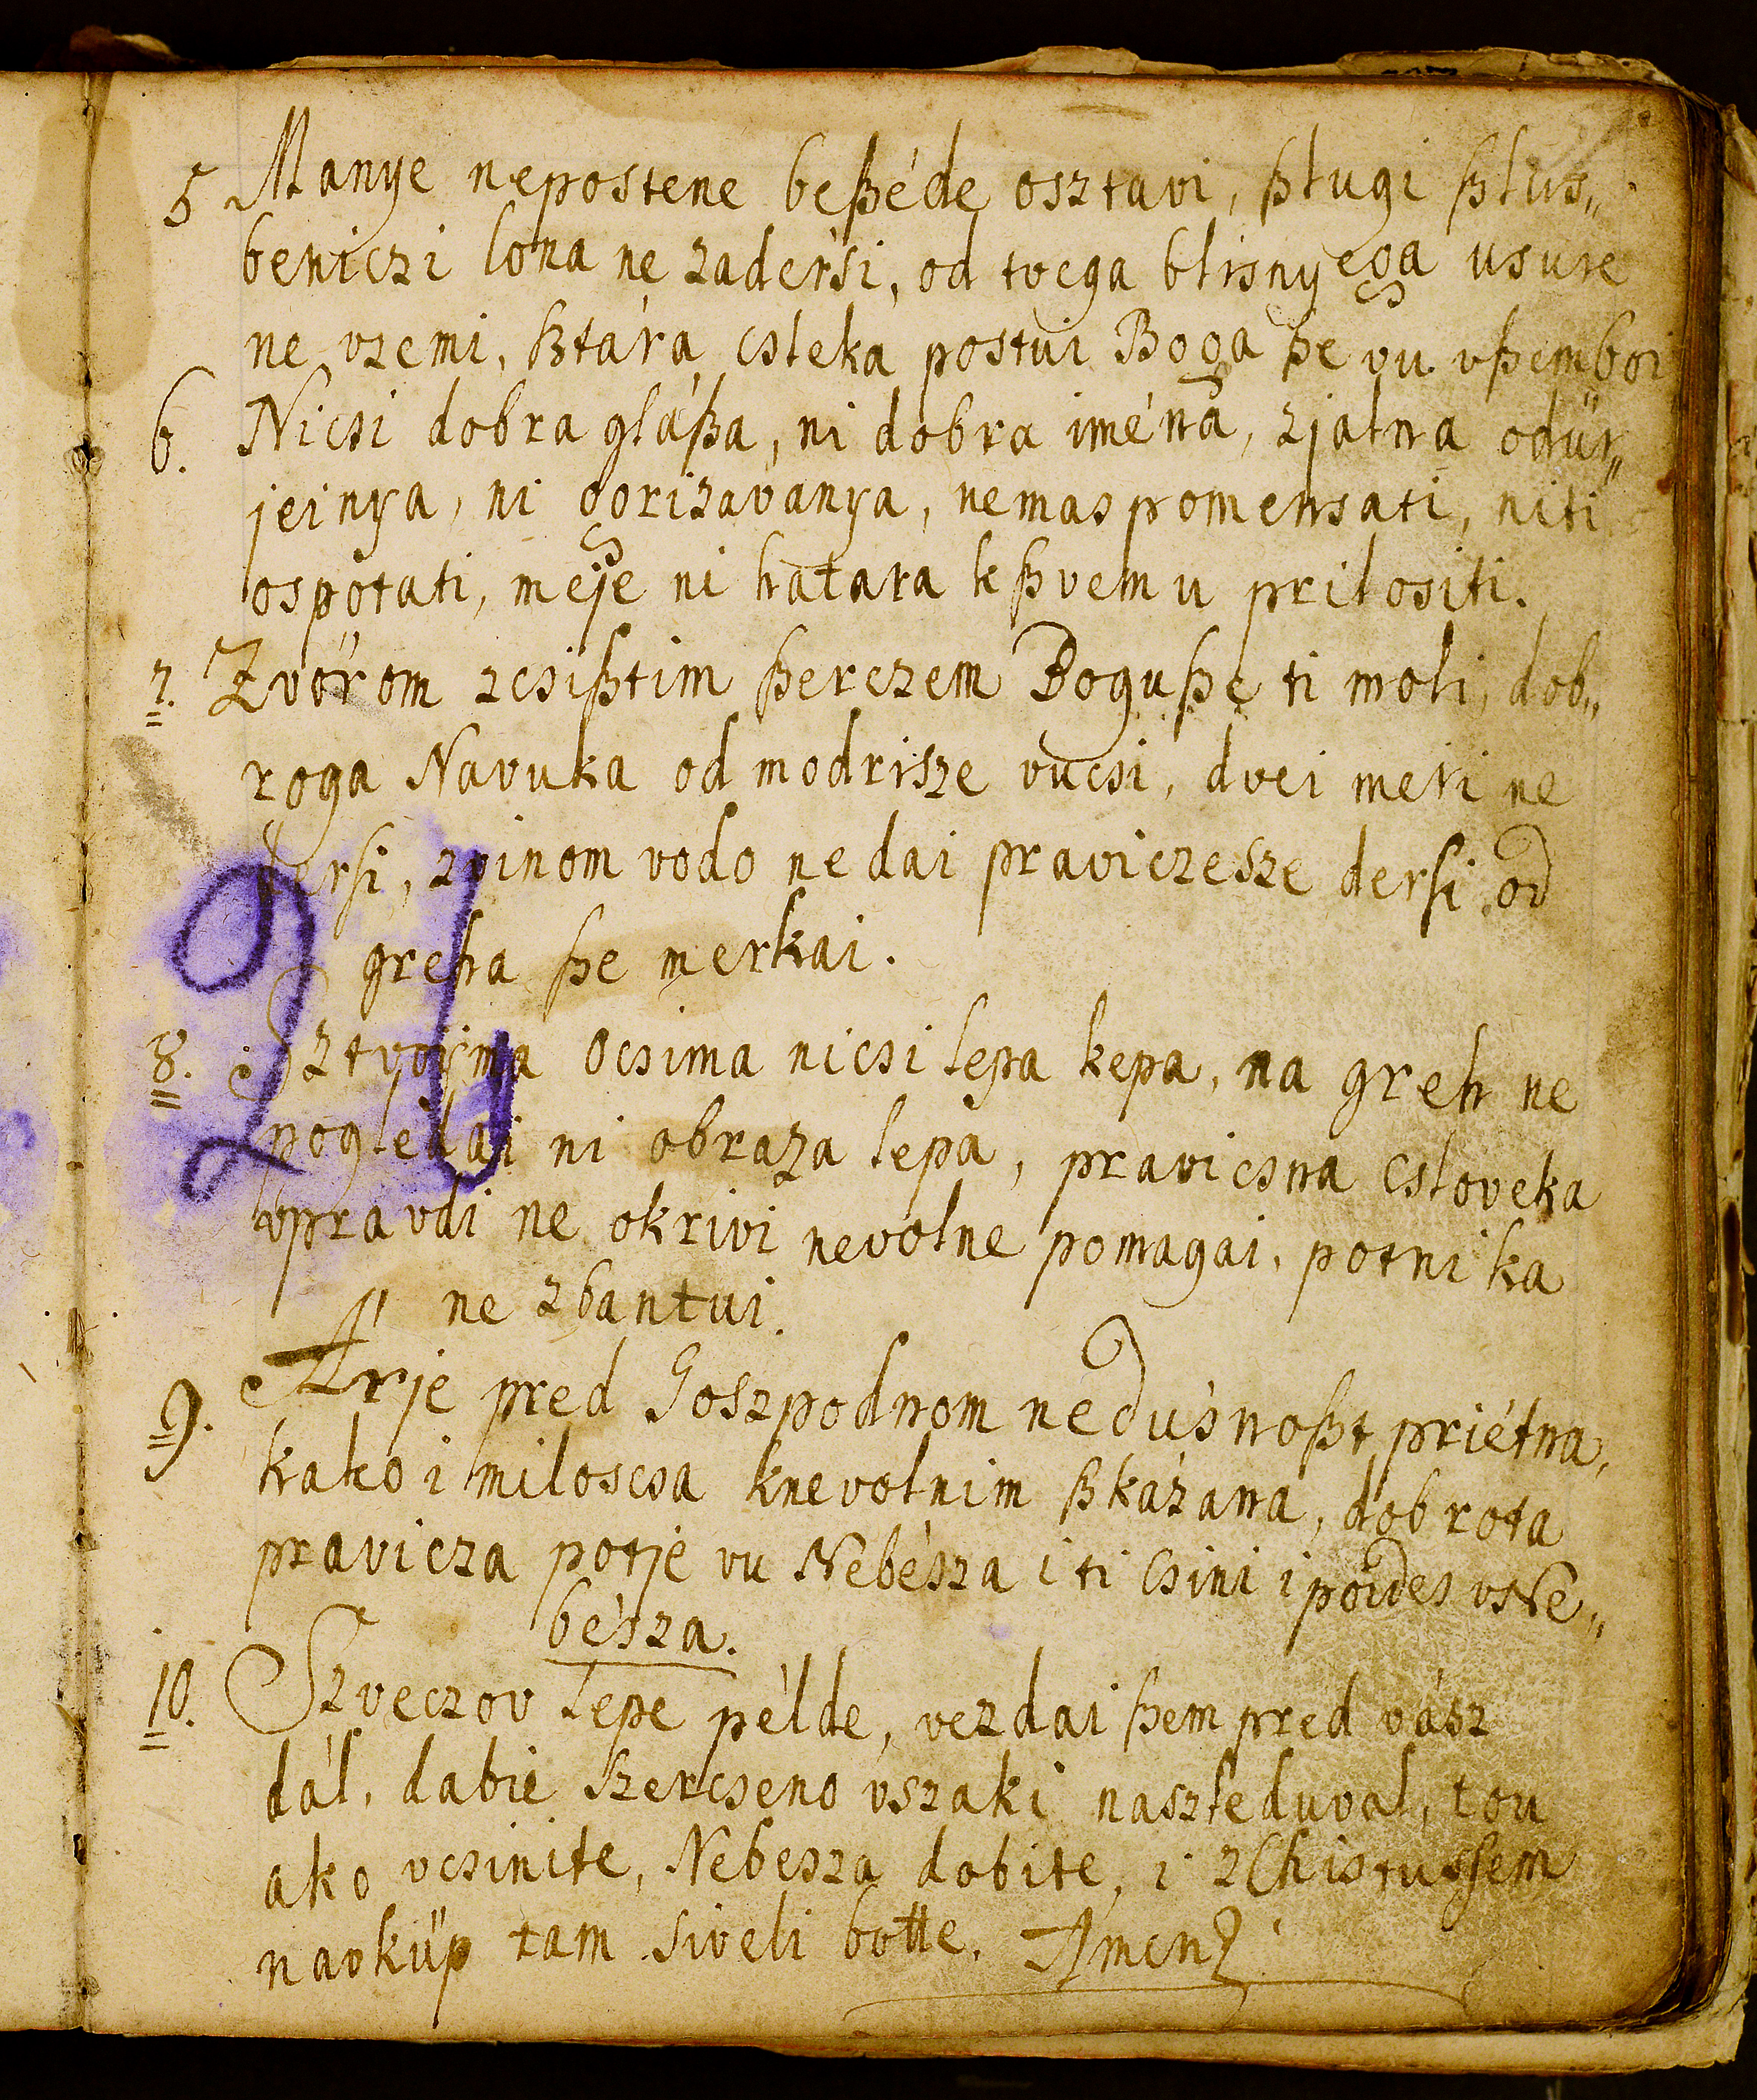 5 Manye nepostene beßéde osztavi, ßlugi ßlus„
beniczi lona ne zadersi, od tvega blisnyega usure
ne vzemi, ßtára csleka postui Boga ße vu vßem boi
6. Nicsi dobra gláßa, ni dobra iména, zjalna odür„
jeinya, ni gorizavanya, nemas pomensati, niti
ospotati, meje ni hatara k ßvemu prilositi.
7. Zvörom zcsißtim ßerczem Bogu ße ti moli, dob„
roga Navuka od modrisze vucsi, dvei meri ne
dersi, zvinom vodo ne dai praviczesze dersi od
greha ße merkai.
8. Sztvoima Ocsima nicsi lepa kepa, na greh ne
pogledai ni obraza lepa, pravicsna csloveka
vpravdi ne okrivi nevolne pomagai, potnika
ne zbantui.
9. Arje pred Goszpodnom nedúsnoßt priétna,
kako i miloscsa knevolnim ßkázana, dobrota
pravicza potje vu Nebésza i ti Csini i poides vNe„
bésza.
10. Szveczov lepe példe, vezdai ßem pred vász
dál, dabie szercseno vszaki naszleduval, tou
ako vcsinite, Nebesza dobite, i zChistussem
navküp tam siveli botte. Amen
24